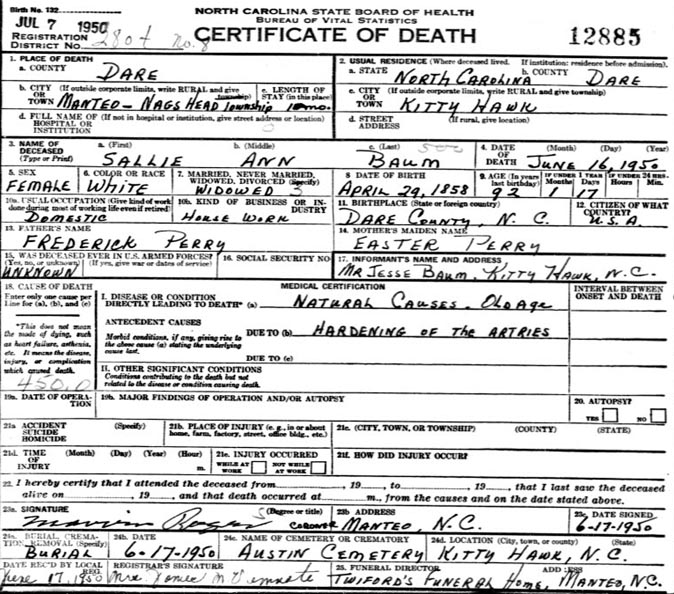 Birth No. 132
NORTH CAROLINA STATE BOARD OF HEALTH
BUREAU OF VITAL STATISTICS
JUL 7 1950
REGISTRATION DISTRICT No.
CERTIFICATE OF DEATH
12885
1. PLACE OF DEATH
a. COUNTY DARE
2. USUAL RESIDENCE (Where deceased lived. If institution: residence before admission).
a. STATE NORTH CAROLINA b. COUNTY DARE
b. CITY (If outside corporate limits, write RURAL and give township) OR TOWN MANTEO - NAGS HEAD TOWNSHIP
c. LENGTH OF STAY (in this place) 10 mo.
c. CITY (If outside corporate limits, write RURAL and give township) OR TOWN KITTY HAWK
d. FULL NAME OF (If not in hospital or institution, give street address or location) HOSPITAL OR INSTITUTION
d. STREET ADDRESS (If rural, give location)
3. NAME OF DECEASED (Type or Print)
a. (First) SALLIE
b. (Middle) ANN
c. (Last) BAUM
4. DATE OF DEATH (Month) (Day) (Year) JUNE 16, 1950
5. SEX FEMALE
6. COLOR OR RACE WHITE
7. MARRIED, NEVER MARRIED, WIDOWED, DIVORCED (Specify) WIDOWED 3
8 DATE OF BIRTH APRIL 29, 1858
9. AGE (In years last birthday) 92
IF UNDER 1 YEAR Months 1 Days 17
IF UNDER 24 HRS. Hours Min.
10a. USUAL OCCUPATION (Give kind of work done during most of working life even if retired) DOMESTIC
10b. KIND OF BUSINESS OR INDUSTRY HOUSE WORK
11. BIRTHPLACE (State or foreign country) DARE COUNTY, N.C.
12. CITIZEN OF WHAT COUNTRY? U.S.A.
13. FATHER'S NAME FREDERICK PERRY
14. MOTHER'S MAIDEN NAME EASTER PERRY
15. WAS DECEASED EVER IN U.S. ARMED FORCES? (Yes, no, or unknown) (If yes, give war or dates of service) UNKNOWN
16. SOCIAL SECURITY NO.
17. INFORMANT'S NAME AND ADDRESS MR JESSE BAUM, KITTY HAWK, N.C.
18. CAUSE OF DEATH
Enter only one cause per Line for (a), (b), and (c)
MEDICAL CERTIFICATION
INTERVAL BETWEEN ONSET AND DEATH
I. DISEASE OR CONDITION DIRECTLY LEADING TO DEATH* (a) NATURAL CAUSES. OLD AGE
*This does not mean the mode of dying, such as heart failure, asthenia, etc. It means the disease, injury, or complication which caused death.
450.0
ANTECEDENT CAUSES
Morbid conditions, if any, giving rise to the above cause (a) stating the underlying cause last.
DUE TO (b) HARDENING OF THE ARTRIES
DUE TO (c)
II. OTHER SIGNIFICANT CONDITIONS
Conditions contributing to the death but not related to the disease or condition causing death.
19a. DATE OF OPERATION
19b. MAJOR FINDINGS OF OPERATION AND/OR AUTOPSY
20. AUTOPSY? YES NO
21a ACCIDENT SUICIDE HOMICIDE (Specify)
21b. PLACE OF INJURY (e. g., in or about home, farm, factory, street, office bldg., etc.)
21c. (CITY, TOWN, OR TOWNSHIP) (COUNTY) (STATE)
21d. TIME OF INJURY (Month) (Day) (Year) (Hour) m.
21e. INJURY OCCURRED WHILE AT WORK NOT WHILE AT WORK
21f. HOW DID INJURY OCCUR?
22. I hereby certify that I attended the deceased from , 19 , to , 19 , that I last saw the deceased
alive on , 19 , and that death occurred at m., from the causes and on the date stated above.
23a. SIGNATURE (Degree or title) CORONER
23b ADDRESS MANTEO, N.C.
23c. DATE SIGNED 6-17-1950
24a. BURIAL, CREMATION, REMOVAL (Specify) BURIAL
24b. DATE 6-17-1950
24c. NAME OF CEMETERY OR CREMATORY AUSTIN CEMETERY
24d. LOCATION (City, town, or county) (State) KITTY HAWK, N.C.
DATE REC'D BY LOCAL REG. June 17, 1950
REGISTRAR'S SIGNATURE Mrs.
25. FUNERAL DIRECTOR ADDRESS TWIFORD'S FUNERAL HOME, MANTEO, N.C.